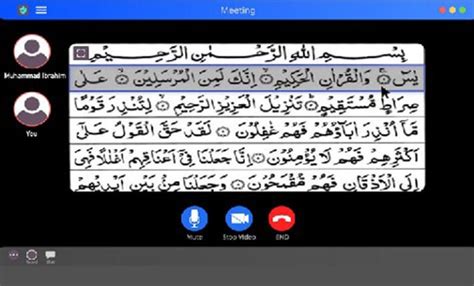 Meeting
Muhammad Ibrahim
You
بِسْمِ اللهِ الرَّحْمٰنِ الرَّحِيْمِ
يٰسٓ ۝ وَالْقُرْاٰنِ الْحَكِيْمِ ۝ اِنَّكَ لَمِنَ الْمُرْسَلِيْنَ ۝ عَلٰى
صِرَاطٍ مُّسْتَقِيْمٍ ۝ تَنْزِيْلَ الْعَزِيْزِ الرَّحِيْمِ ۝ لِتُنْذِرَ قَوْمًا
مَّاۤ اُنْذِرَ اٰبَآؤُهُمْ فَهُمْ غٰفِلُوْنَ ۝ لَقَدْ حَقَّ الْقَوْلُ عَلٰۤى
اَكْثَرِهِمْ فَهُمْ لَا يُؤْمِنُوْنَ ۝ اِنَّا جَعَلْنَا فِيْۤ اَعْنَاقِهِمْ اَغْلٰلًا فَهِيَ
اِلَى الْاَذْقَانِ فَهُمْ مُّقْمَحُوْنَ ۝ وَجَعَلْنَا مِنْۢ بَيْنِ اَيْدِيْهِمْ
Mute
Stop Video
END